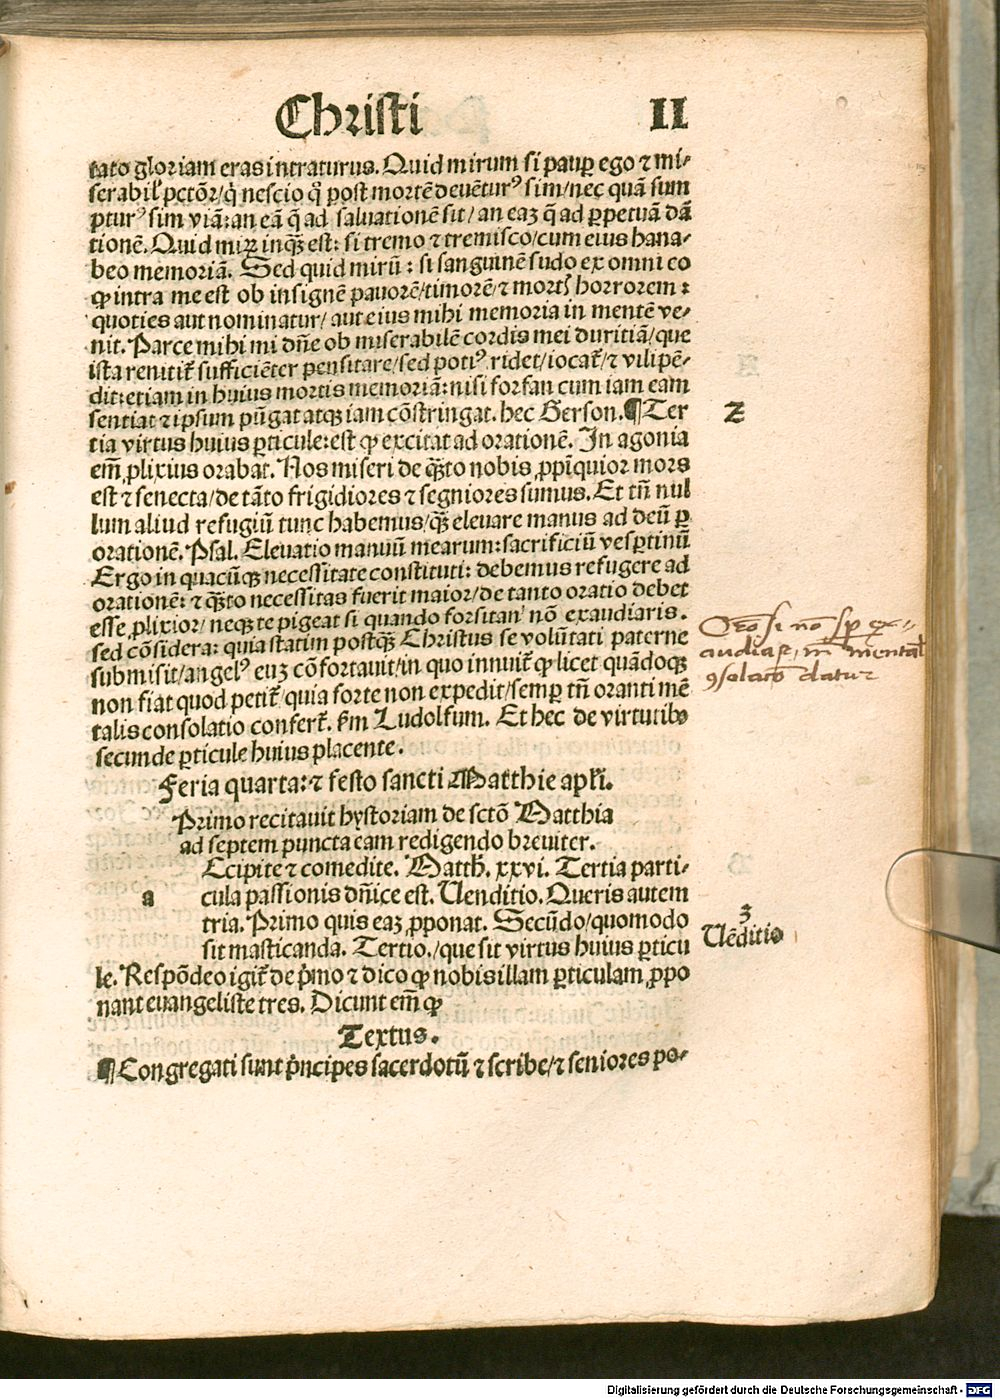 Christi II
tato gloriam eras intraturus. Quid mirum si paup ego ⁊ mi⸗
serabil' pctõr/q̇ nescio q̃ post mortẽ deuẽturꝰ sim/nec quã sum
pturꝰ sim viã: an eã q̃ ad saluationẽ sit/ an eaꝫ q̃ ad ꝑpetuã dã
tionẽ. Quid miꝝ inqᷓꝫ est: si tremo ⁊ tremisco/cum eius hana⸗
beo memoriã. Sed quid mirũ: si sanguinẽ sudo ex omni eo
ꝙ intra me est ob insignẽ pauorẽ/timorẽ/⁊ mortꝭ horrorem:
quoties aut nominatur/ aut eius mihi memoria in mentẽ ve⸗
nit. Parce mihi mi dñe ob miserabilẽ cordis mei duritiã/que
ista renitit̃ sufficiẽter pensitare/sed potiꝰ ridet/iocat̃/⁊ vilipẽ⸗
dit: etiam in huius mortis memoriã: nisi forsan cum iam eam
sentiat ⁊ ipsum pũgat atqꝫ iam cõstringat. hec Gerson. ¶ Ter
Z
tia virtus huius ꝑticule: est ꝙ excitat ad orationẽ. In agonia
em̃ ꝓlixius orabat. Nos miseri de qᷓꝫto nobis ꝓpĩquior mors
est ⁊ senecta/de tãto frigidiores ⁊ segniores sumus. Et tñ nul
lum aliud refugiũ tunc habemus/qᷓꝫ eleuare manus ad deũ ꝑ
orationẽ. Psal. Eleuatio manuũ mearum: sacrificiũ vesꝑtinũ
Ergo in quacũqꝫ necessitate constituti: debemus refugere ad
orationẽ: ⁊ qᷓꝫto necessitas fuerit maior/de tanto oratio debet
esse ꝓlixior/ neqꝫ te pigeat si quando forsitan nõ exaudiaris.
sed cõsidera: quia statim postqᷓꝫ Christus se volũtati paterne
submisit/angelꝰ euꝫ cõfortauit/in quo innuit̃ ꝙ licet quãdoqꝫ
non fiat quod petit̃/quia forte non expedit/semꝑ tñ oranti mẽ
talis consolatio confert̃. ẜm Ludolfum. Et hec de virtutibꝰ
secunde ꝑticule huius placente.
Oro si no sp ex⸗
audiar, tn mental
ꝯsolato datur
Feria quarta: ⁊ festo sancti Matthie apl'i.
Primo recitauit hystoriam de sctõ Matthia
ad septem puncta eam redigendo breuiter.
a
Ecipite ⁊ comedite. Matth̃. xxvi. Tertia parti⸗
cula passionis dñice est. Uenditio. Queris autem
tria. Primo quis eaꝫ ꝓponat. Secũdo/quomodo
sit masticanda. Tertio./que sit virtus huius ꝑticu
3
Uẽditio
le. Respõdeo igit̃ de p̃mo ⁊ dico ꝙ nobis illam ꝑticulam ꝓpo
nant euangeliste tres. Dicunt em̃ ꝙ
Textus.
¶ Congregati sunt p̃ncipes sacerdotũ ⁊ scribe/⁊ seniores po⸗
Digitalisierung gefördert durch die Deutsche Forschungsgemeinschaft - DFG